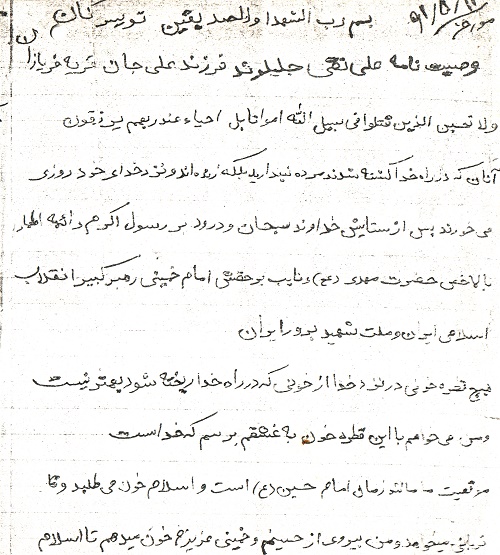 بسم رب الشهدا والصدیقین تویسرکان
مورخه ۶۱/۵/۱۰
وصیت نامه علی نقی جلیلوند فرزند علی جان قریه فریازان
ولا تحسبن الذین قتلوا فی سبیل الله امواتا بل احیاء عند ربهم یرزقون
آنان که در راه خدا کشته شدند مرده نپندارید بلکه زنده اند و نزد خدای خود روزی
می خورند پس از ستایش خداوند سبحان و درود بر رسول اکرم و ائمه اطهار
بالاخص حضرت مهدی (عج) و نایب برحقش امام خمینی رهبر کبیر انقلاب
اسلامی ایران و ملت شهید پرور ایران
هیچ قطره خونی در نزد خدا از خونی که در راه خدا ریخته شود بهتر نیست
ومن می خواهم با این قطره خون به عشقم برسم که خداست
موقعیت ما مانند زمان امام حسین (ع) است و اسلام خون می طلبد و
قربانی میخواهد ومن پیروی از حسینم و خمینی عزیزم خون میدهم تا اسلام